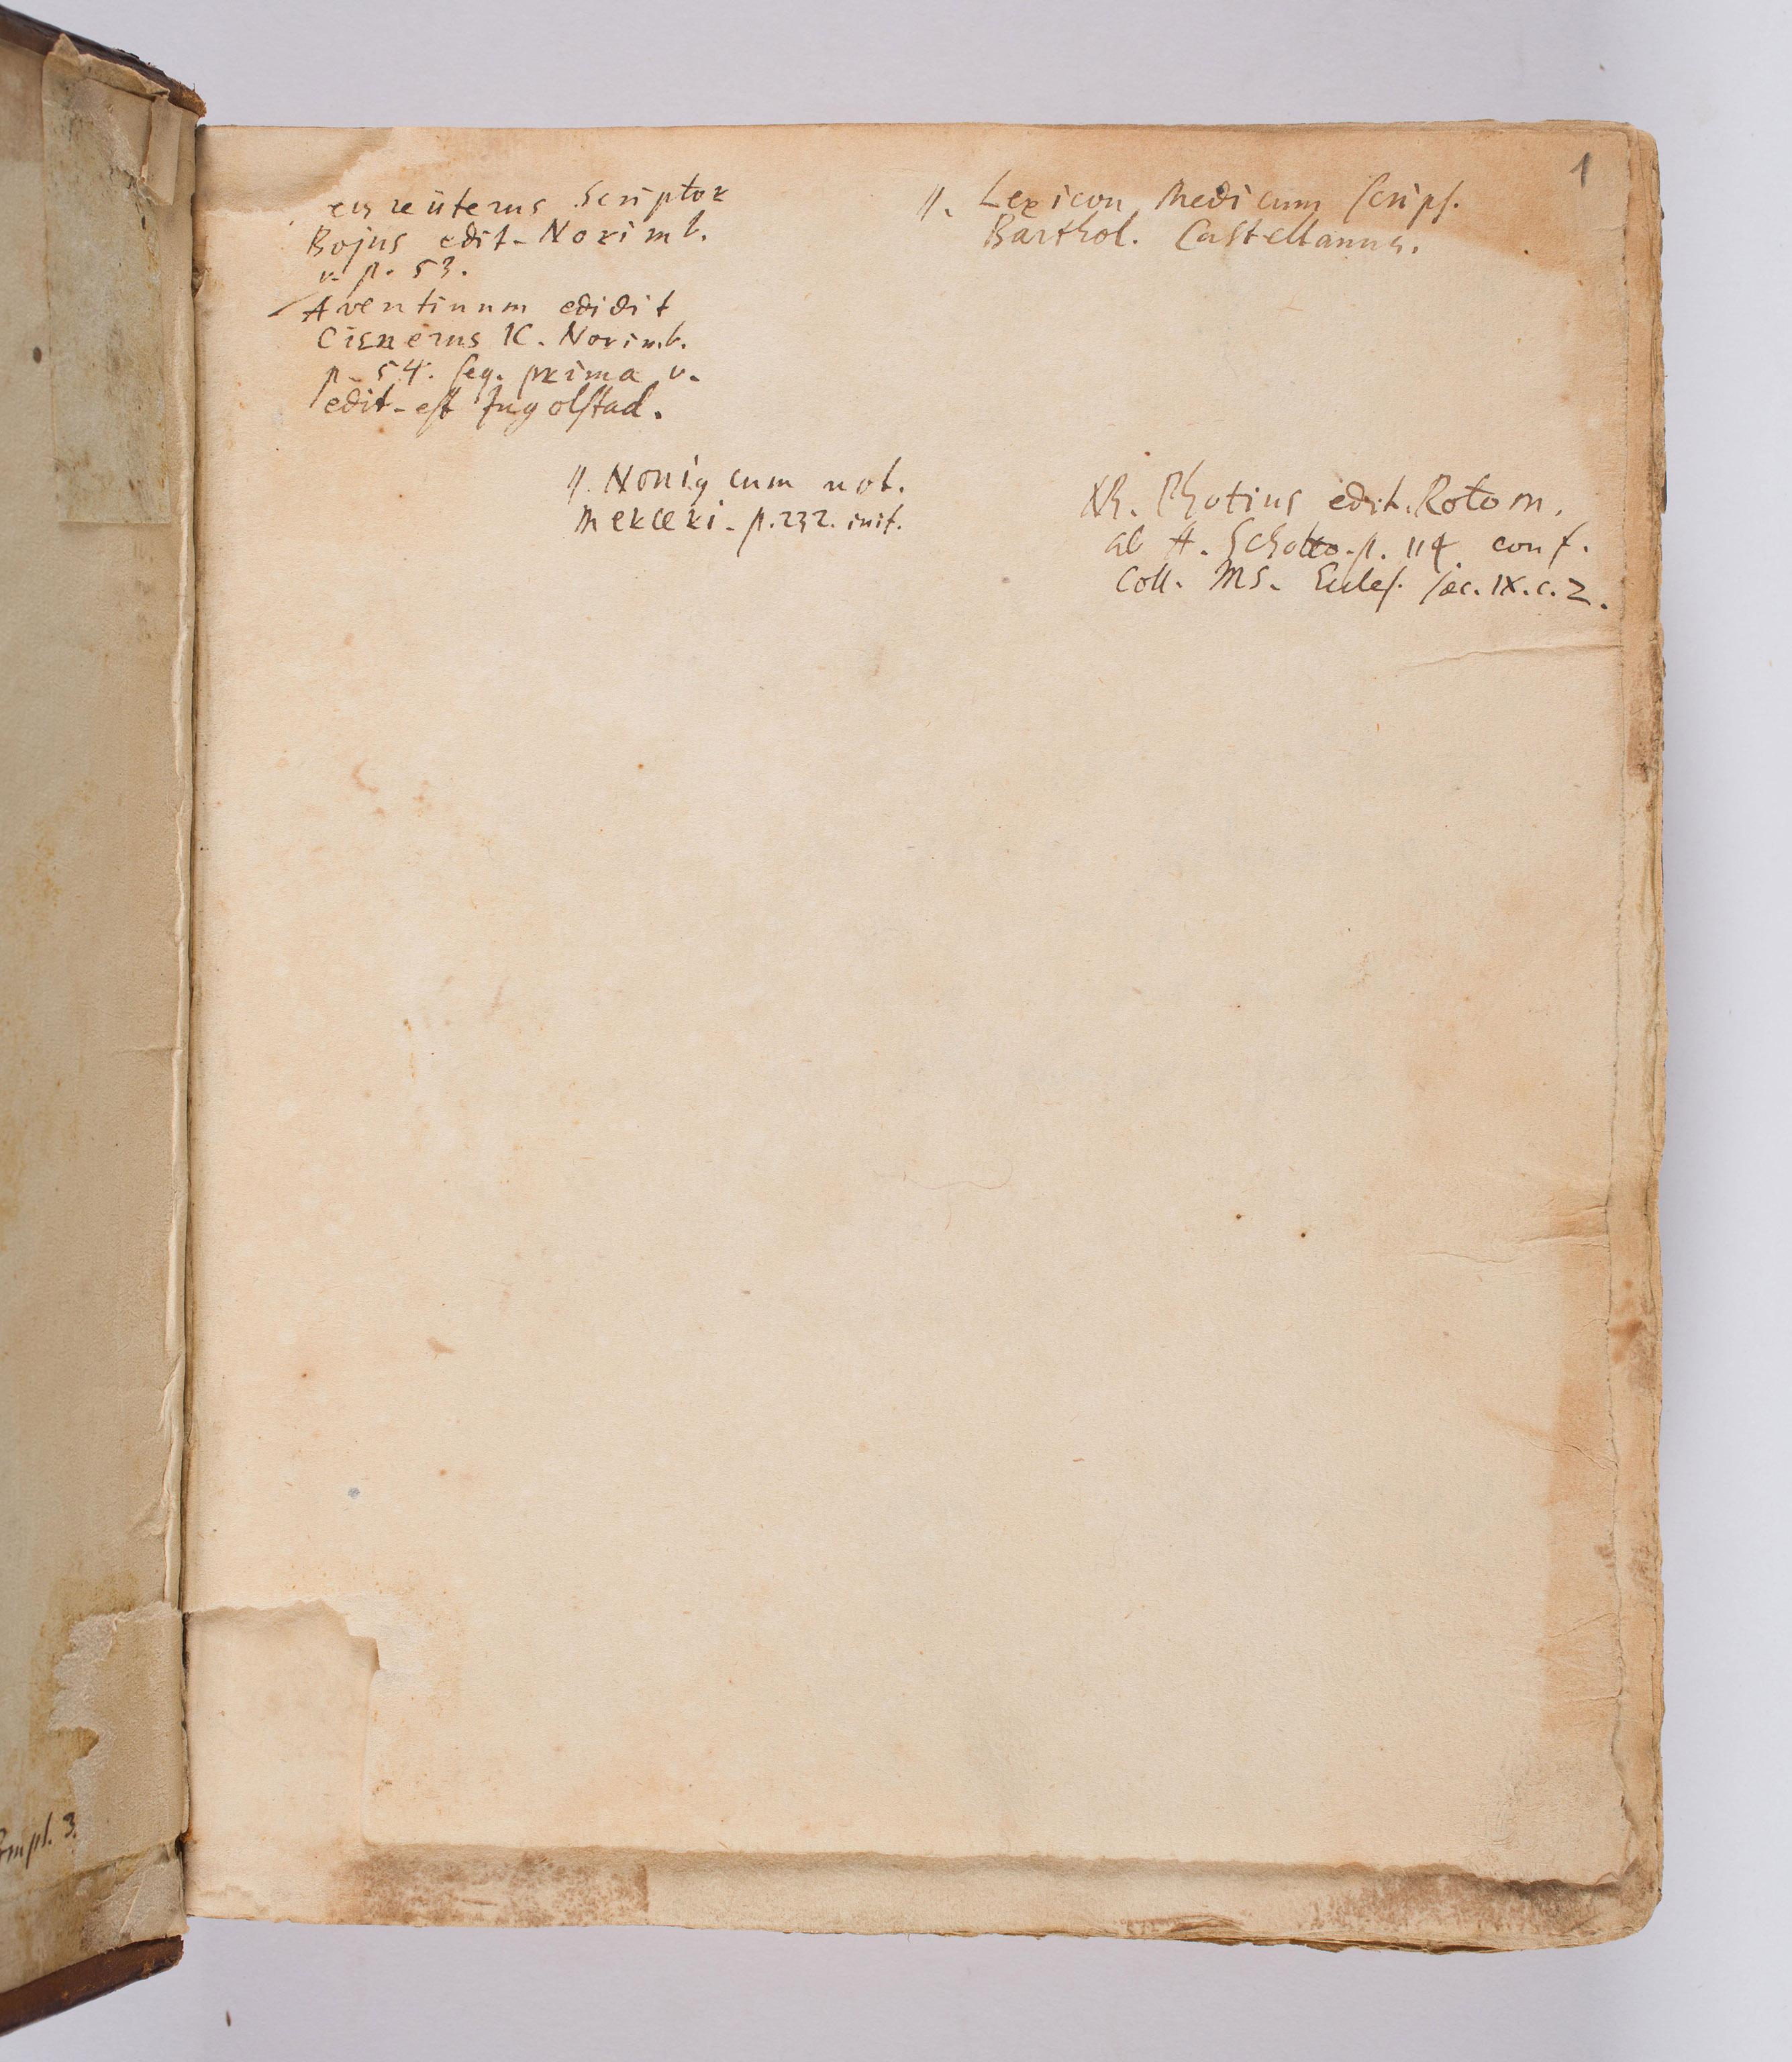 eis reüterus Scriptor
Bojus edit. Norimb.
v. p. 53.
Aventinum edidit
Cisnerus IC. Norimb.
p. 54. seq. prima v.
edit. est Ingolstad.
11. Nonig cum not.
Merceri. p. 232. init.
11. Lexicon Medicum scrips.
Barthol. Castellanus.
NB. Photius edit. Rotom.
ab A. Schotto. p. 114 conf.
Coll. MS. Eccles. sec. IX. c. 2.
1
mpl. 3.